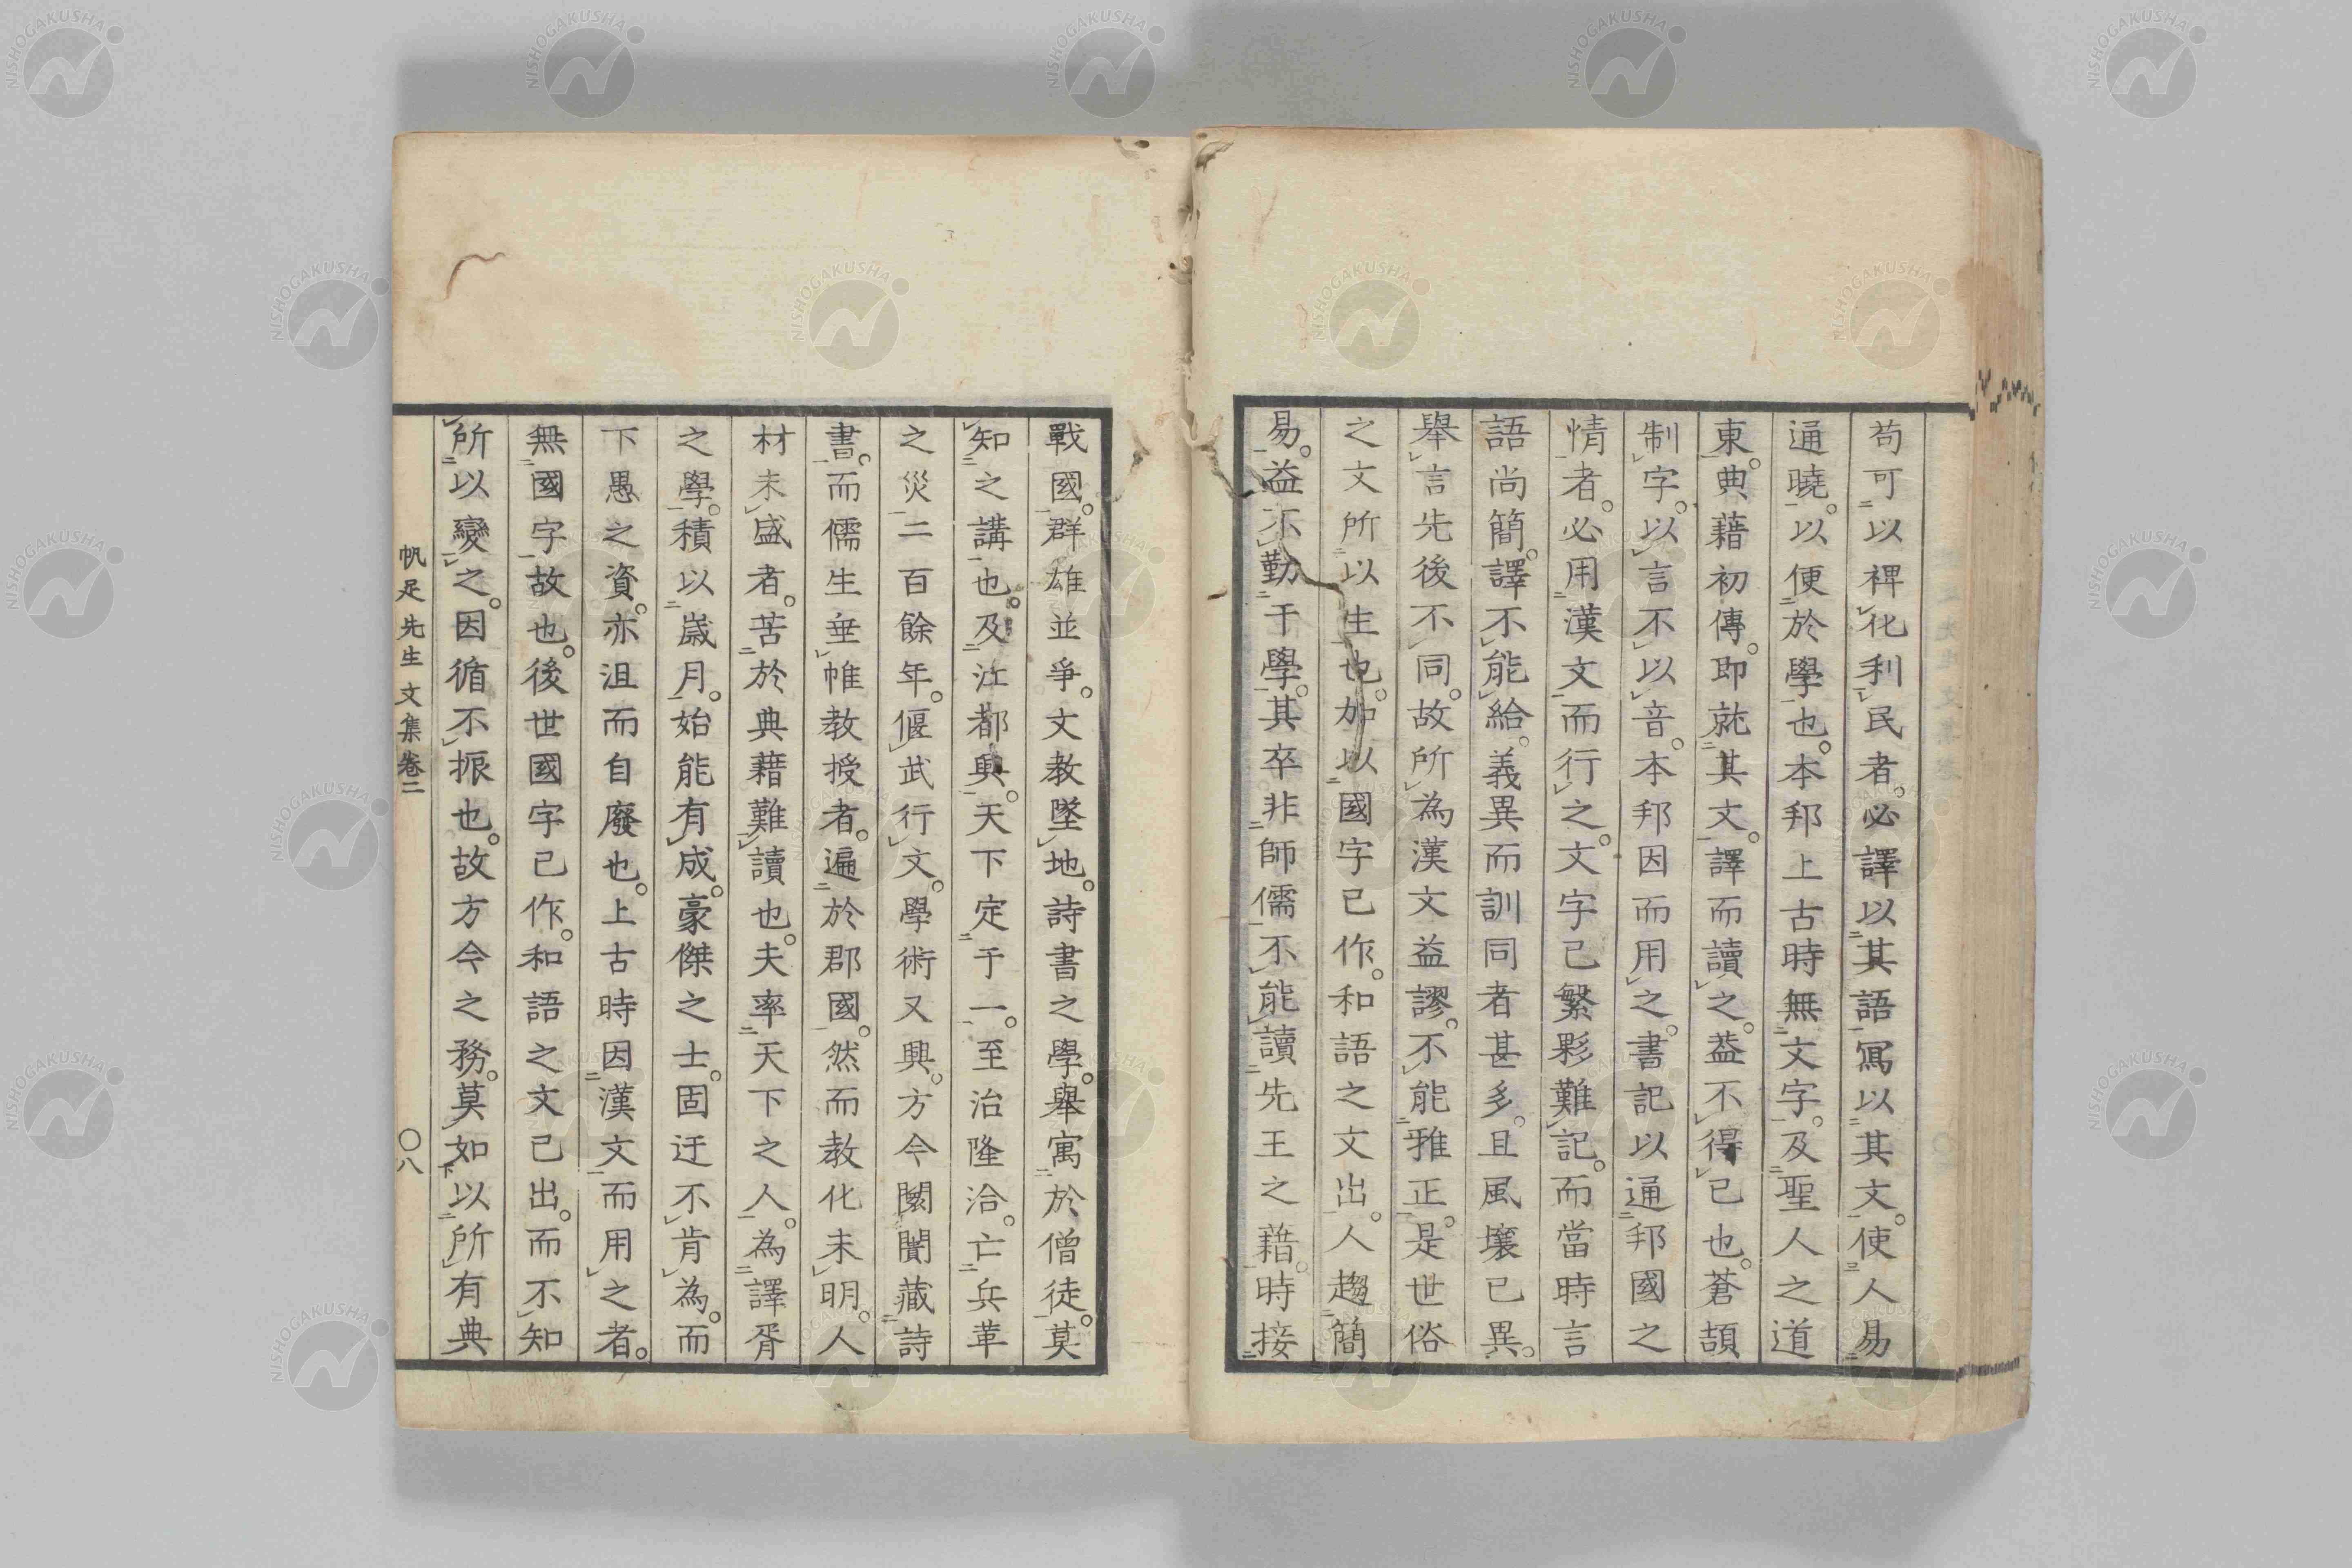 苟可㆓以裨㆑化利㆒㆑民者。必譯以㆓其語㆒寫以㆓其文㆒。使㆔人易㆓
通曉㆒。以便㆓於學㆒也。本邦上古時無㆓文字㆒。及㆓聖人之道
東㆒。典藉初傳。即就㆓其文㆒。譯而讀㆑之。葢不㆑得㆑已也。蒼頡
制㆑字。以㆑言不㆑以㆑音。本邦因而用㆑之。書記以通㆓邦國之
情㆒者。必用㆓漢文㆒而行㆑之。文字已繁夥難㆑記。而當時言
語尚簡。譯不㆑能㆑給。義異而訓同者甚多。且風壤已異。
舉㆑言先後不㆑同。故所㆑為漢文益謬。不㆑能㆓雅正㆒。是世俗
之文所㆓以生㆒也。加以㆓國字已作。和語之文出㆒。人趨㆓簡
易㆒。益不㆑勤于學。其卒非㆓師儒㆒不㆑能㆑讀㆓先王之藉㆒。時接㆓
戰國㆒。群雄並爭。文教墜㆑地。詩書之學。舉寓㆓於僧徒㆒。莫㆑
知㆓之講㆒也。及㆓江都興㆒。天下定㆓于一㆒。至治隆洽。亡㆓兵革
之災㆒二百餘年。偃㆑武行㆑文。學術又興。方今闤闠藏㆓詩
書㆒。而儒生垂㆑帷教授者。遍㆓於郡國㆒。然而教化未㆑明。人
材未㆑盛者。苦㆓於典藉難㆒㆑讀也。夫率㆓天下之人㆒。為㆓譯胥
之學㆒。積以㆓歲月㆒。始能有㆑成。豪傑之士。固迂不㆑肯㆑為。而
下愚之資。亦沮而自廢也。上古時因㆓漢文㆒而用㆑之者。
無㆓國字㆒故也。後世國字已作。和語之文已出。而不㆑知㆑
所㆓以變㆒㆑之。因循不㆑振也。故方今之務。莫㆑如㆘以㆓所㆑有典
帆足先生文集卷二
〇八